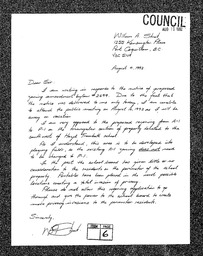 COUNCIL
AUG 10 1992
William A.
1255 Kensington Place
Port Coquitlam, BC
August 4, 1992
Dear Sir:
I am writing in response to the notice of proposed
zoning amendment, bylaw # 2699. Due to the fact that
this notice was delivered to me only today, I am unable
to attend the public meeting on August 10, 1992 as I will be
away on vacation.
I am very opposed to the proposed rezoning from A-1
to P-1 on the triangular section of property related to the
south west of Lloyd Trumbull school.
As I understand, this area is to be developed into
playing fields, so the existing zoning does not need
to be changed to P-1.
In the past, the school board has given little or no
consideration to the residents on the perimeter of the school
property. Portables have been placed in the worst possible
locations creating a total invasion of privacy.
Please do not allow this zoning application to go
through and give the power to the school board to create
more privacy invasions to the perimeter residents.
Sincerely,
ITEM PAGE
6